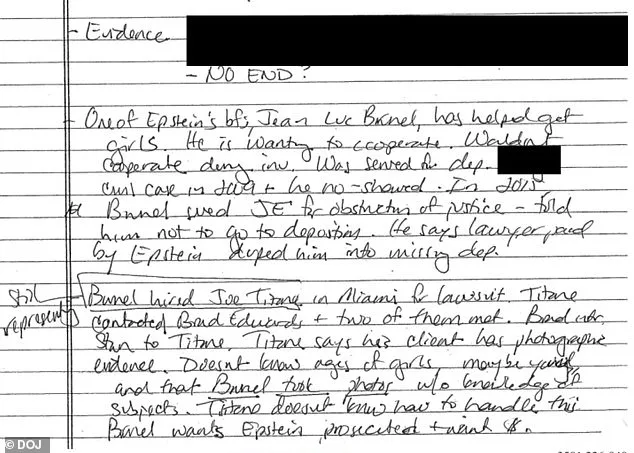 - Evidence
- NO END?
- One of Epstein's bfs, Jean Luc Brunel, has helped get
girls. He is wanting to cooperate. Wouldn't
cooperate during inv. Was served for dep.
civil case in 2009 + he no-showed. In 2015,
Brunel sued JE for obstruction of justice - told
him not to go to deposition. He says lawyer paid
by Epstein duped him into missing dep.
still
represents
- Brunel hired Joe Titone in Miami for lawsuit. Titone
contacted Brad Edwards + two of them met. Brad
Stan to Titone. Titone says his client has photographic
evidence. Doesn't know ages of girls maybe
and that Brunel took photos w/o knowledge of
subjects. Titone doesn't know how to handle this
Brunel wants Epstein prosecuted + want $.
© DOJ